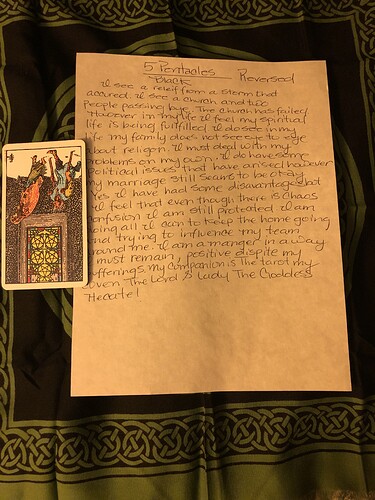 5 Pentacles
Black Reversed
I see a releif from a storm that
accured. I see a church and two
people passing bye. The church has failed
However in my life I feel my spiritual
life is being fulfilled. I do see in my
life my family does not see eye to eye
about religon. I must deal with my
problems on my own. I do have some
political issues that have arised however
my marriage still seams to be okay
yes I have had some disavantages but
I feel that even though there is chaos
confusion I am still protected I am
doing all I can to keep the home going
and trying to influence my team
around me. I am a manger in a way
I must remain, positive dispite my
sufferings. my companion is the tarot my
coven The Lord & Lady The Goddess
Hecate!